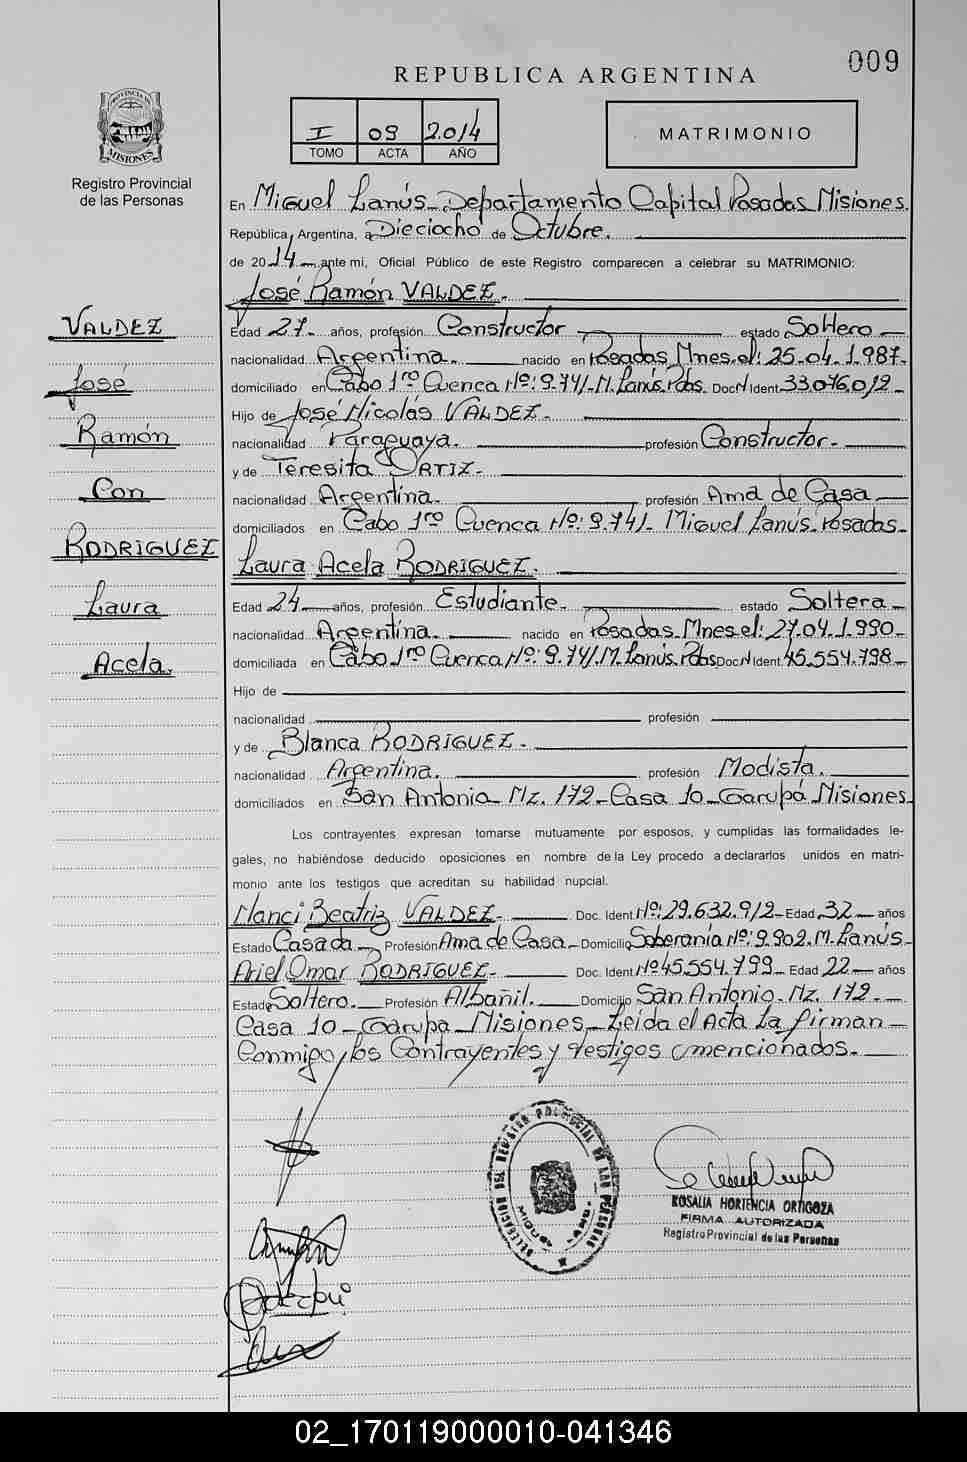 009
REPUBLICA ARGENTINA
I 09 2.014
TOMO ACTA AÑO
MATRIMONIO
PROVINCIA DE
MISIONES
Registro Provincial
de las Personas
En Miguel Lanús - Departamento Capital Posadas Misiones.
República Argentina, a Dieciocho de Octubre.
de 2014 ante mi, Oficial Público de este Registro comparecen a celebrar su MATRIMONIO:
José Ramón VALDEZ.
VALDEZ
José
Ramón
Con
RODRIGUEZ
Laura
Acela.
Edad 27- años, profesión Constructor estado Soltero
nacionalidad Argentina. nacido en Posadas Mnes.el: 25.04.1.987.
domiciliado en Cabo 1ro Cuenca Nº: 9.741-M.Lanús.Pdas. Doc. Ident. 33.076.012-
Hijo de José Nicolás VALDEZ.
nacionalidad Paraguaya. profesión Constructor.
y de Teresita ORTIZ.
nacionalidad Argentina. profesión Ama de Casa
domiciliados en Cabo 1ro Cuenca Nº: 9.741- Miguel Lanús-Posadas-
Laura Acela RODRIGUEZ.
Edad 24 años, profesión Estudiante. estado Soltera
nacionalidad Argentina. nacido en Posadas Mnes.el: 27.04.1.990-
domiciliada en Cabo 1ro Cuenca Nº: 9.741.M.Lanús.Pdas Doc. Ident. 45.554.798-
Hijo de
nacionalidad profesión
y de Blanca RODRIGUEZ.
nacionalidad Argentina. profesión Modista.
domiciliados en San Antonio Mz. 172-Casa 10-Garupá Misiones
Los contrayentes expresan tomarse mutuamente por esposos, y cumplidas las formalidades le-
gales, no habiéndose deducido oposiciones en nombre de la Ley procedo a declararlos unidos en matri-
monio ante los testigos que acreditan su habilidad nupcial.
Nanci Beatriz VALDEZ- Doc. Ident. Nº:29.632.912-Edad 32 años
Estado Casada Profesión Ama de Casa- Domicilio Soberanía Nº: 9.902.M.Lanús-
Ariel Omar RODRIGUEZ- Doc. Ident. Nº45.554.799- Edad 22 años
Estado Soltero. Profesión Albañil. Domicilio San Antonio. Mz. 172.-
Casa 10-Garupa-Misiones-Leida el Acta La firman
Conmigo, los Contrayentes y testigos mencionados.
DELEGACION DEL REGISTRO PROVINCIAL DE LAS PERSONAS
MIGUEL LANUS
ROSALIA HORTENCIA ORTIGOZA
FIRMA AUTORIZADA
Registro Provincial de las Personas
02_170119000010-041346